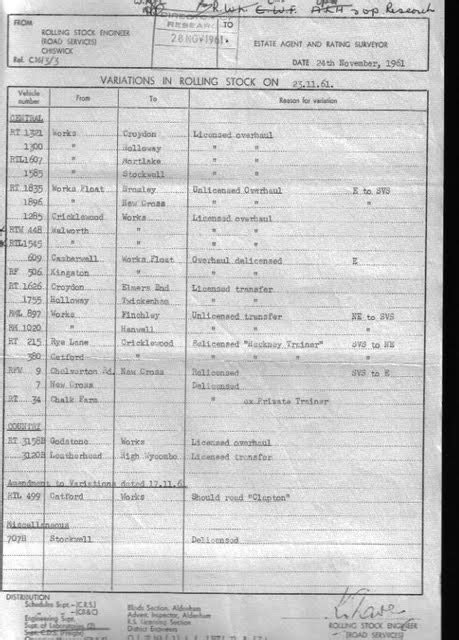 R.W.K. G.W.F. AKH s op Research
FROM
ROLLING STOCK ENGINEER
(ROAD SERVICES)
CHISWICK
Ref. C16/3/3
RESEAR
28 NOV 1961
TO
ESTATE AGENT AND RATING SURVEYOR
DATE 24th November, 1961
VARIATIONS IN ROLLING STOCK ON 23.11.61.
Vehicle number From To Reason for variation
CENTRAL
RT 1321 Works Croydon Licensed overhaul
1300 " Holloway " "
RTL1607 " Mortlake " "
1585 " Stockwell " "
RT 1835 Works Float Bromley Unlicensed Overhaul E to SVS
1896 " New Cross " " "
1285 Cricklewood Works Licensed overhaul
RTW 448 Walworth " " "
RTL1545 " " " "
609 Camberwell Works Float Overhaul delicensed E
RF 506 Kingston " " "
RT 1626 Croydon Elmers End Licensed transfer
1755 Holloway Twickenham " "
RML 897 Works Finchley Unlicensed transfer NE to SVS
RM 1020 " Hanwell " " "
RT 215 Rye Lane Cricklewood Relicensed "Hackney Trainer" SVS to NE
380 Catford " " " " "
RFW 9 Chelverton Rd. New Cross Relicensed SVS to E
7 New Cross Delicensed
RT 34 Chalk Farm " ex Private Trainer
COUNTRY
RT 3158B Godstone Works Licensed overhaul
3120B Leatherhead High Wycombe Licensed transfer
Amendment to Variations dated 17.11.6
RTL 499 Catford Works Should read "Clapton"
Miscellaneous
707B Stockwell Delicensed
DISTRIBUTION
Schedules Supt.-(C.R.S.)
" -(CB&C)
Engineering Supt.
Supt. of Laboratories (2)
Supt. C.D.S. (Freight)
Blinds Section, Aldenham
Advert. Inspector, Aldenham
R.S. Licensing Section
District Engineers
ROLLING STOCK ENGINEER
(ROAD SERVICES)